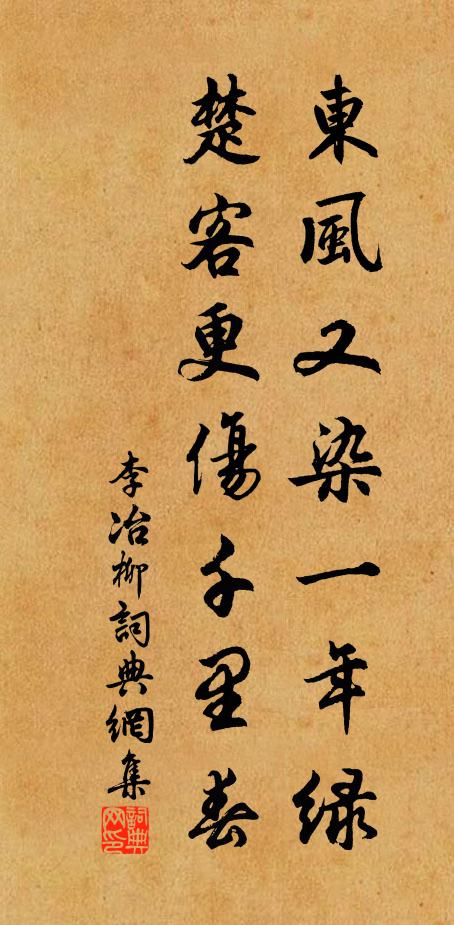 東風又染一年綠
楚客更傷千里春
李冶柳詞典網集
詞典网印